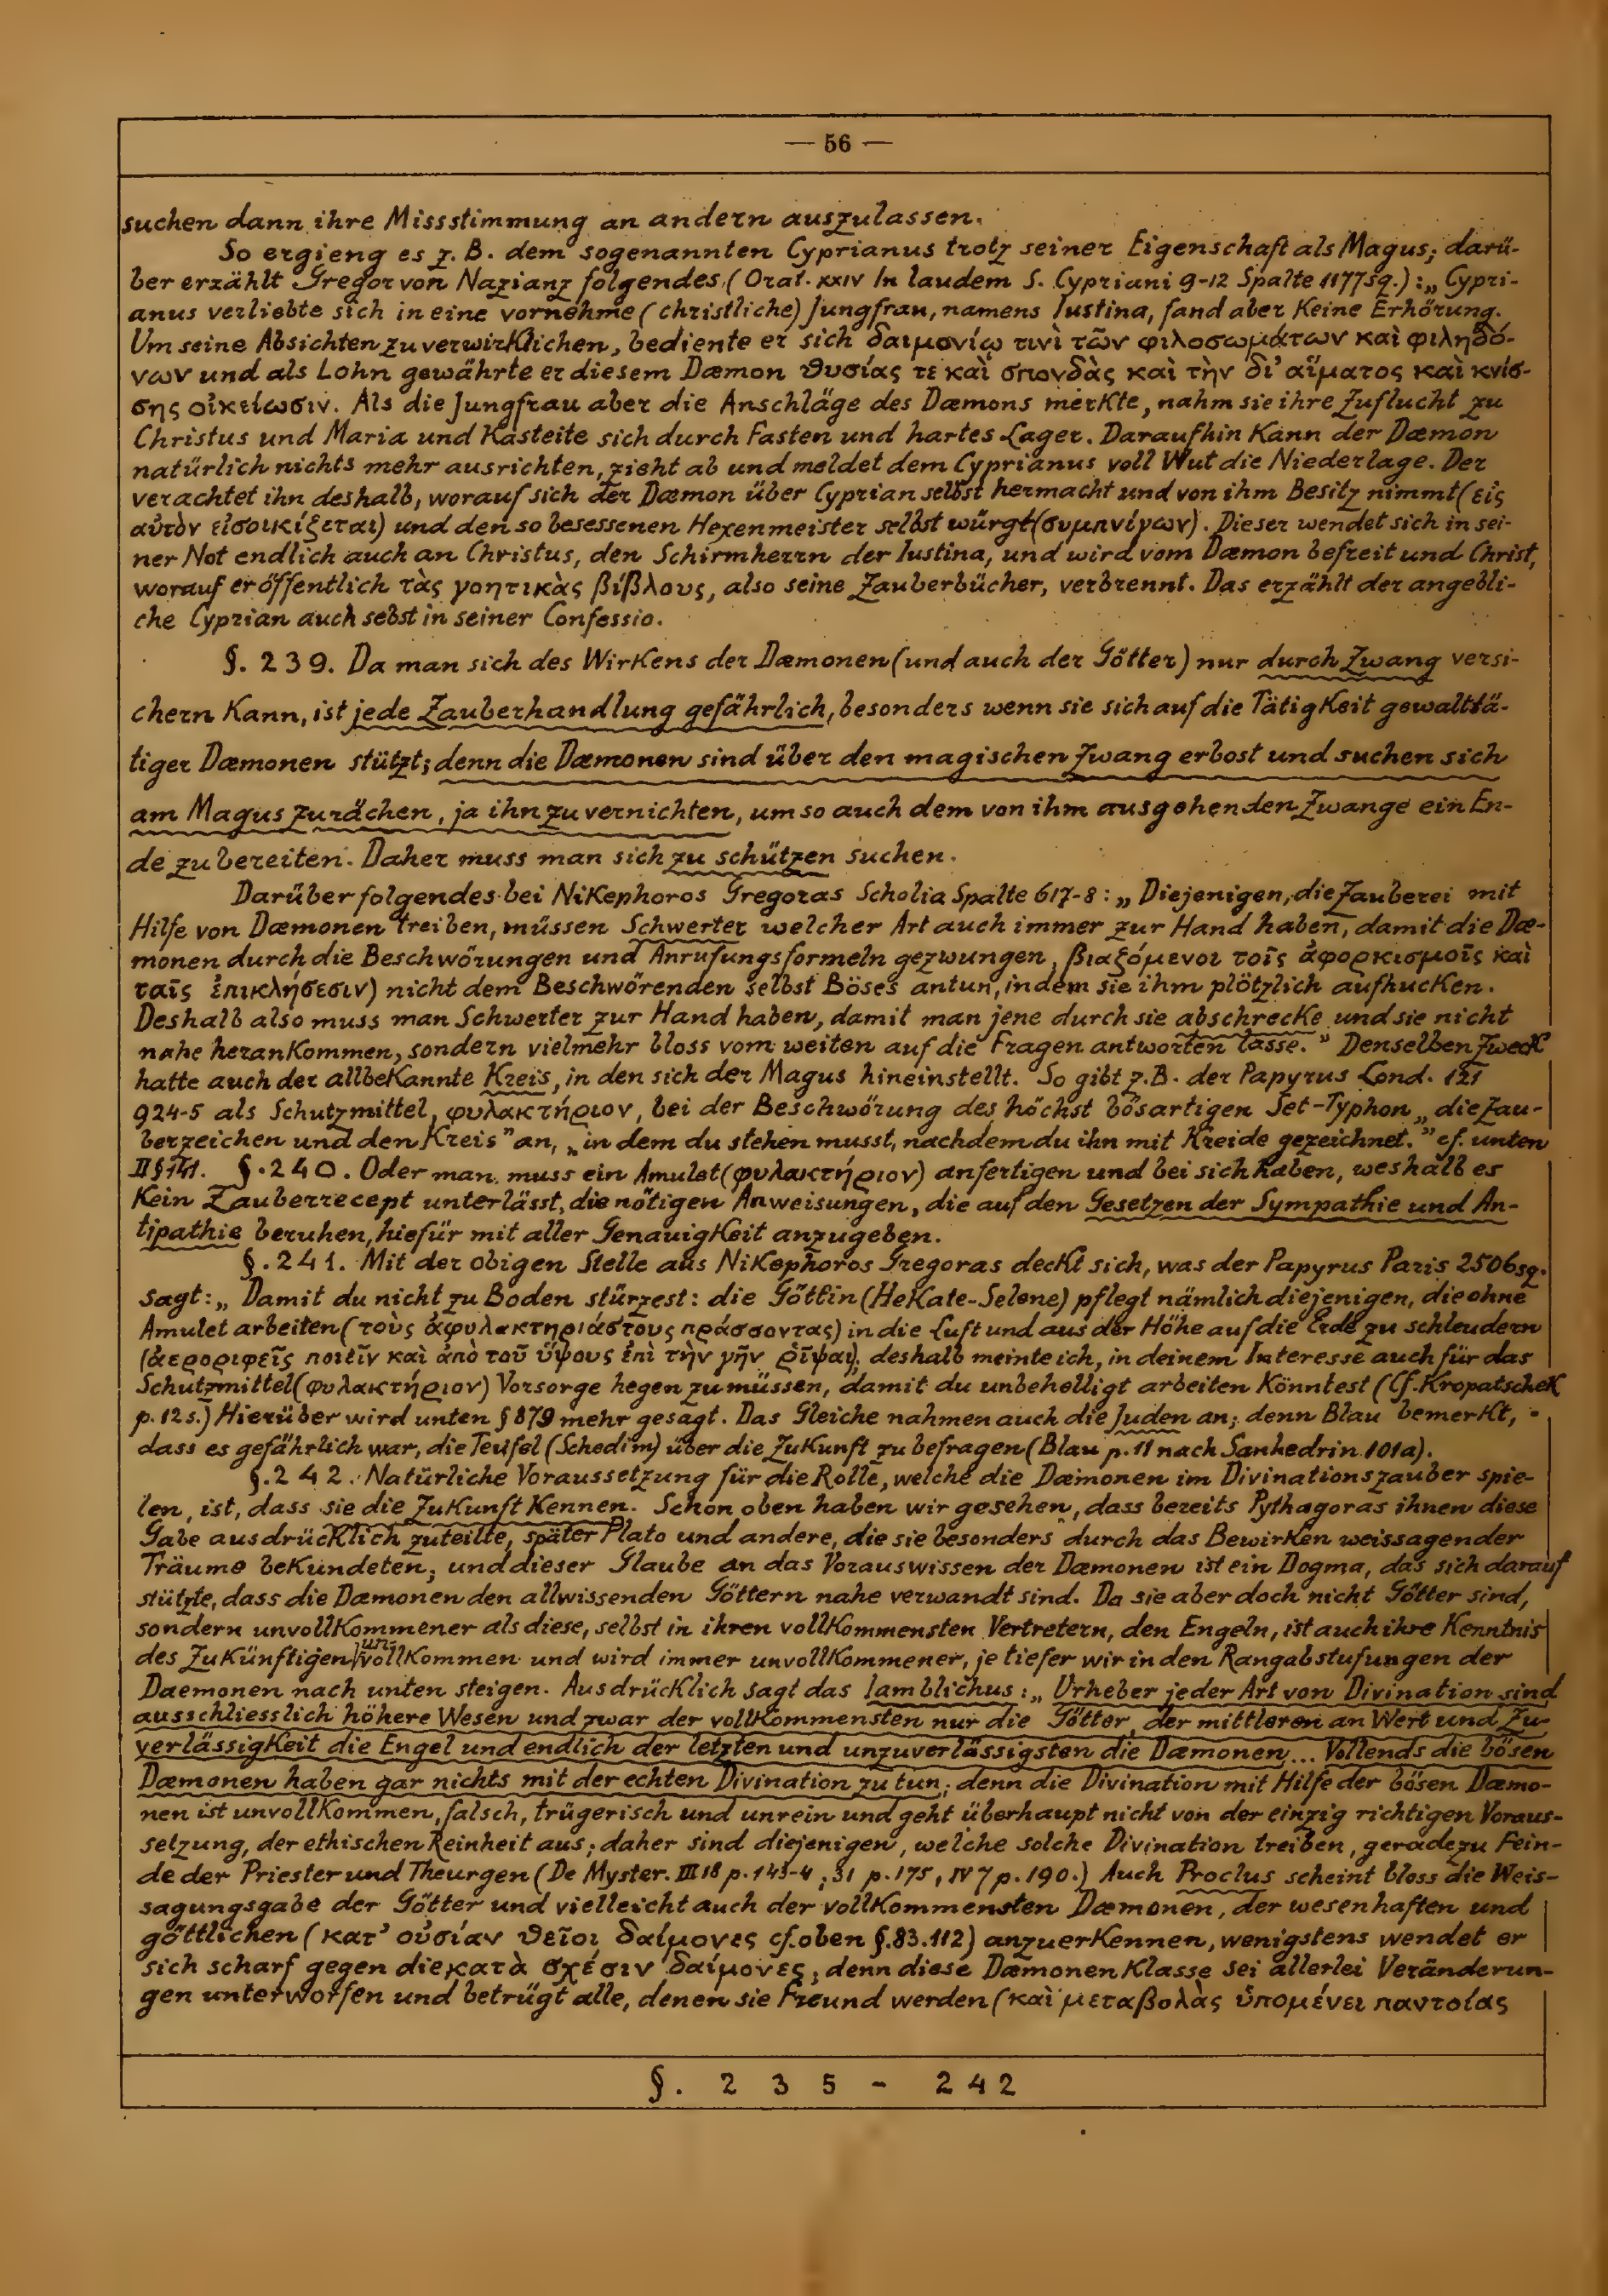 — 56 —
suchen dann ihre Missstimmung an andern auszulassen.
So ergieng es z. B. dem sogenannten Cyprianus trotz seiner Eigenschaft als Magus; darü-
ber erzählt Gregor von Nazianz folgendes (Orat. XXIV In laudem S. Cypriani 9-12 Spalte 1177sq.): „Cypri-
anus verliebte sich in eine vornehme (christliche) Jungfrau, namens Iustina, fand aber Keine Erhörung.
Um seine Absichten zu verwirklichen, bediente er sich δαιμονίῳ τινὶ τῶν φιλοσωμάτων καὶ φιληδό-
νων und als Lohn gewährte er diesem Dæmon θυσίας τε καὶ σπονδὰς καὶ τὴν δι' αἵματος καὶ κνίσ-
σης οἰκείωσιν. Als die Jungfrau aber die Anschläge des Dæmons merkte, nahm sie ihre Zuflucht zu
Christus und Maria und Kasteite sich durch Fasten und hartes Lager. Daraufhin Kann der Dæmon
natürlich nichts mehr ausrichten, zieht ab und meldet dem Cyprianus voll Wut die Niederlage. Der
verachtet ihn deshalb, worauf sich der Dæmon über Cyprian selbst hermacht und von ihm Besitz nimmt (εἰς
αὐτὸν εἰσοικίζεται) und den so besessenen Hexenmeister selbst würgt (συμπνίγων). Dieser wendet sich in sei-
ner Not endlich auch an Christus, den Schirmherrn der Iustina, und wird vom Dæmon befreit und Christ,
worauf er öffentlich τὰς γοητικὰς βίβλους, also seine Zauberbücher, verbrennt. Das erzählt der angebli-
che Cyprian auch sebst in seiner Confessio.
§. 239. Da man sich des Wirkens der Dæmonen (und auch der Götter) nur durch Zwang versi-
chern Kann, ist jede Zauberhandlung gefährlich, besonders wenn sie sich auf die Tätigkeit gewalttä-
tiger Dæmonen stützt; denn die Dæmonen sind über den magischen Zwang erbost und suchen sich
am Magus zu rächen, ja ihn zu vernichten, um so auch dem von ihm ausgehenden Zwange ein En-
de zu bereiten. Daher muss man sich zu schützen suchen.
Darüber folgendes bei Nikephoros Gregoras Scholia Spalte 617-8: „Diejenigen, die Zauberei mit
Hilfe von Dæmonen treiben, müssen Schwerter welcher Art auch immer zur Hand haben, damit die Dæ-
monen durch die Beschwörungen und Anrufungsformeln gezwungen, βιαζόμενοι τοῖς ἀφορκισμοῖς καὶ
ταῖς ἐπικλήσεσιν) nicht dem Beschwörenden selbst Böses antun, indem sie ihm plötzlich aufhucken.
Deshalb also muss man Schwerter zur Hand haben, damit man jene durch sie abschrecke und sie nicht
nahe heranKommen, sondern vielmehr bloss vom weiten auf die Fragen antworten lasse." Denselben Zweck
hatte auch der allbekannte Kreis, in den sich der Magus hineinstellt. So gibt z.B. der Papyrus Lond. 121
924-5 als Schutzmittel, φυλακτήριον, bei der Beschwörung des höchst bösartigen Set-Typhon „die Zau-
berzeichen und den Kreis" an, „in dem du stehen musst, nachdem du ihn mit Kreide gezeichnet." cf. unten
II § 141. §. 240. Oder man muss ein Amulet (φυλακτήριον) anfertigen und bei sich haben, weshalb es
Kein Zauberrecept unterlässt, die nötigen Anweisungen, die auf den Gesetzen der Sympathie und An-
tipathie beruhen, hiefür mit aller Genauigkeit anzugeben.
§. 241. Mit der obigen Stelle aus Nikephoros Gregoras deckt sich, was der Papyrus Paris 2506sq.
sagt: „Damit du nicht zu Boden stürzest: die Göttin (Hekate-Selene) pflegt nämlich diejenigen, die ohne
Amulet arbeiten (τοὺς ἀφυλακτηριάστους πράσσοντας) in die Luft und aus der Höhe auf die Erde zu schleudern
(ἀεροριφεῖς ποιεῖν καὶ ἀπὸ τοῦ ὕψους ἐπὶ τὴν γῆν ῥῖψαι); deshalb meinte ich, in deinem Interesse auch für das
Schutzmittel (φυλακτήριον) Vorsorge hegen zu müssen, damit du unbehelligt arbeiten Könntest (Cf. Kropatschek
p. 12 s.) Hierüber wird unten § 879 mehr gesagt. Das Gleiche nahmen auch die Juden an; denn Blau bemerkt,
dass es gefährlich war, die Teufel (Schedim) über die Zukunft zu befragen (Blau p. 11 nach Sanhedrin 101a).
§. 242. Natürliche Voraussetzung für die Rolle, welche die Dæmonen im Divinationszauber spie-
len, ist, dass sie die Zukunft Kennen. Schon oben haben wir gesehen, dass bereits Pythagoras ihnen diese
Gabe ausdrücklich zuteilte, später Plato und andere, die sie besonders durch das Bewirken weissagender
Träume bekundeten; und dieser Glaube an das Vorauswissen der Dæmonen ist ein Dogma, das sich darauf
stützte, dass die Dæmonen den allwissenden Göttern nahe verwandt sind. Da sie aber doch nicht Götter sind,
sondern unvollKommener als diese, selbst in ihren vollKommensten Vertretern, den Engeln, ist auch ihre Kenntnis
des Zukünftigen unvollKommen und wird immer unvollKommener, je tiefer wir in den Rangabstufungen der
Daemonen nach unten steigen. Ausdrücklich sagt das Iamblichus: „Urheber jeder Art von Divination sind
ausschliesslich höhere Wesen und zwar der vollKommensten nur die Götter, der mittleren an Wert und Zu-
verlässigkeit die Engel und endlich der letzten und unzuverlässigsten die Dæmonen... Vollends die bösen
Dæmonen haben gar nichts mit der echten Divination zu tun; denn die Divination mit Hilfe der bösen Dæmo-
nen ist unvollKommen, falsch, trügerisch und unrein und geht überhaupt nicht von der einzig richtigen Voraus-
setzung, der ethischen Reinheit aus; daher sind diejenigen, welche solche Divination treiben, geradezu Fein-
de der Priester und Theurgen (De Myster. III 18 p. 143-4, 31 p. 175, IV 7 p. 190.) Auch Proclus scheint bloss die Weis-
sagungsgabe der Götter und vielleicht auch der vollKommensten Dæmonen, der wesenhaften und
göttlichen (κατ' οὐσίαν θεῖοι δαίμονες cf. oben §. 83. 112) anzuerKennen, wenigstens wendet er
sich scharf gegen die κατὰ σχέσιν δαίμονες, denn diese DæmonenKlasse sei allerlei Veränderun-
gen unterworfen und betrügt alle, denen sie Freund werden (καὶ μεταβολὰς ὑπομένει παντοίας
§. 235 - 242